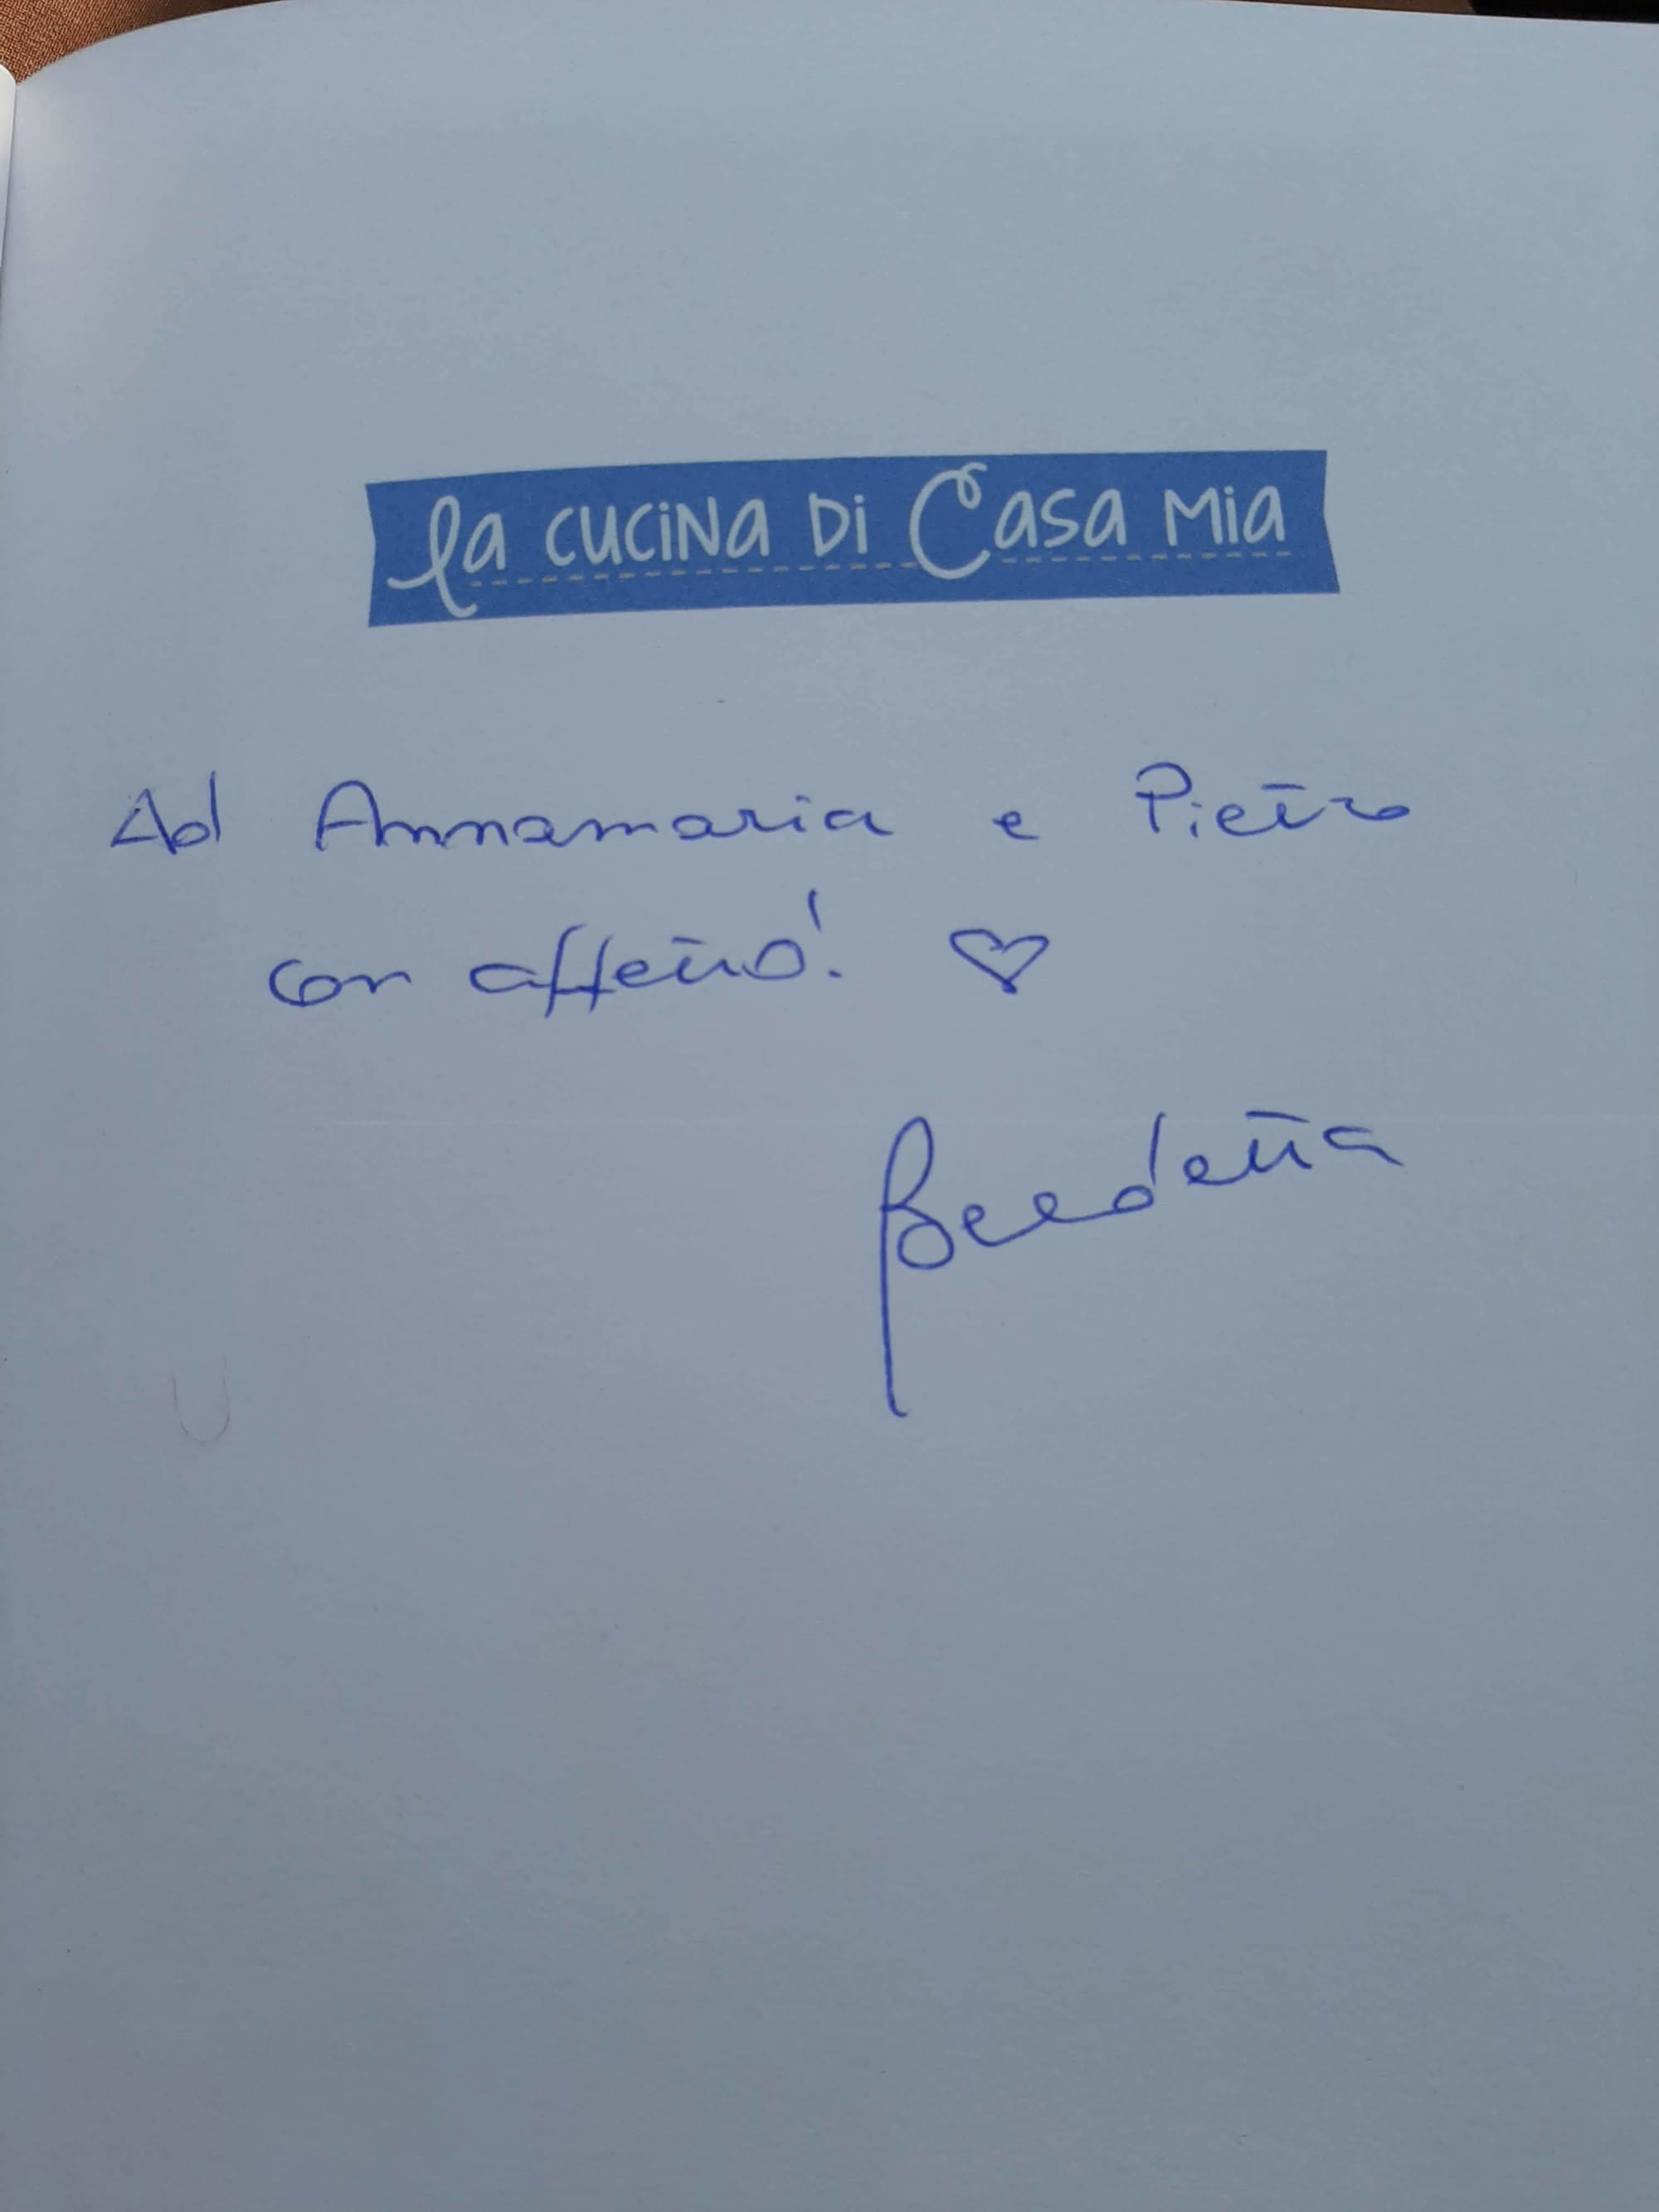 la cucina di Casa mia
Ad Annamaria e Pietro
con affetto! ♡
Benedetta